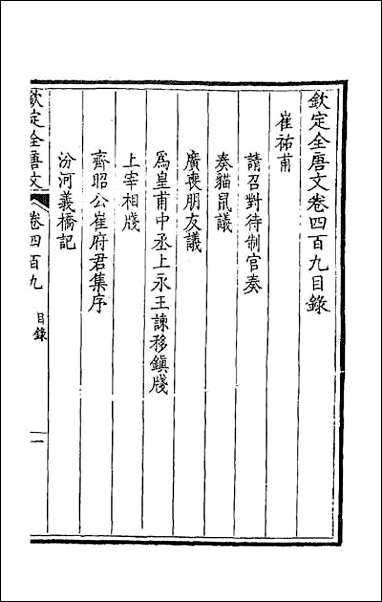 欽定全唐文卷四百九目錄
崔祐甫
請召對待制官奏
奏貓鼠議
廣喪朋友議
為皇甫中丞上永王諫移鎮牋
上宰相牋
齊昭公崔府君集序
汾河義橋記
欽定全唐文 卷四百九 目錄 一